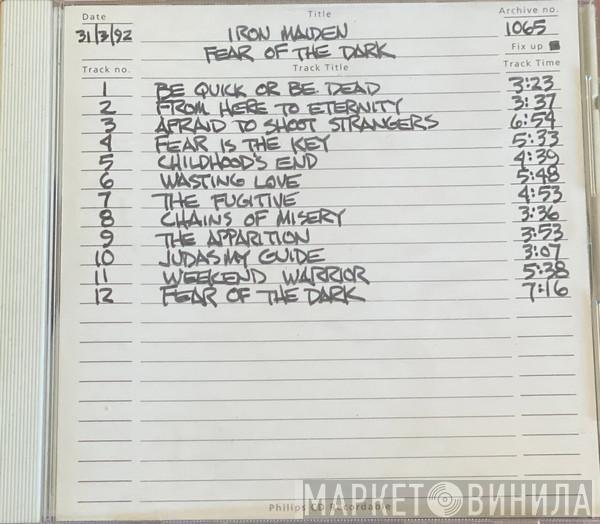 Date Title Archive no.
31/3/92 IRON MAIDEN 1065
FEAR OF THE DARK Fix up
Track no. Track Title Track Time
1 BE QUICK OR BE DEAD 3:23
2 FROM HERE TO ETERNITY 3:37
3 AFRAID TO SHOOT STRANGERS 6:54
4 FEAR IS THE KEY 5:33
5 CHILDHOOD'S END 4:39
6 WASTING LOVE 5:48
7 THE FUGITIVE 4:53
8 CHAINS OF MISERY 3:36
9 THE APPARITION 3:53
10 JUDAS MY GUIDE 3:07
11 WEEKEND WARRIOR 5:38
12 FEAR OF THE DARK 7:16
Philips CD Recordable
МАРКЕТ ВИНИЛА